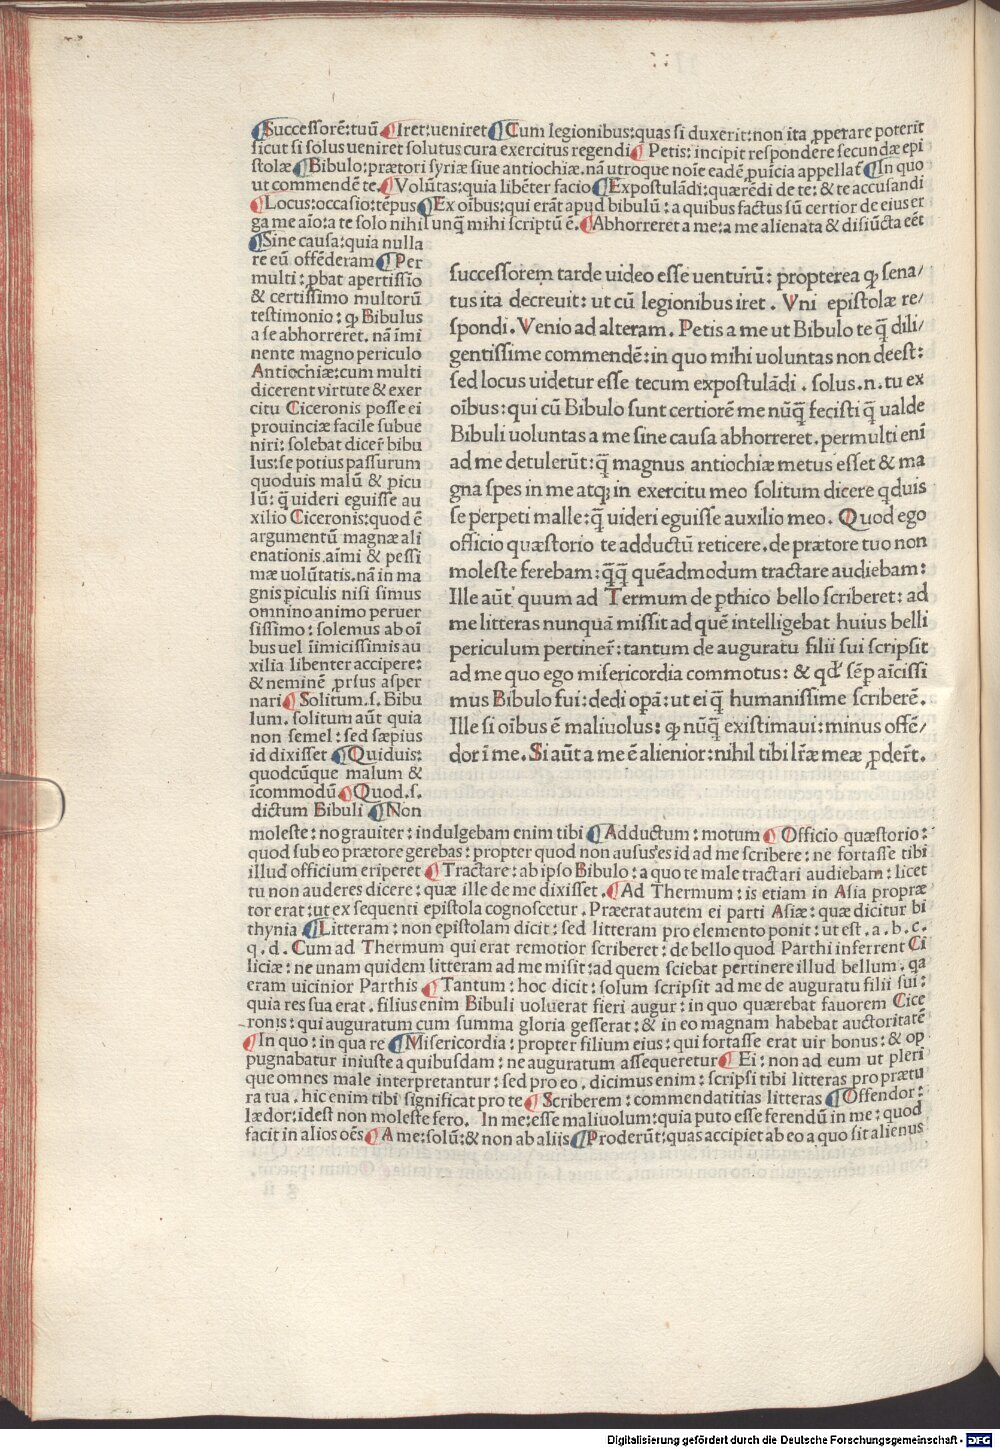 ¶Successorē:tuū ¶Iret:ueniret ¶Cum legionibus:quas si duxerit:non ita ꝓperare poterit
sicut si solus ueniret solutus cura exercitus regendi ¶ Petis: incipit respondere secundæ epi
stolæ ¶Bibulo:prætori syriæ siue antiochiæ.nā utroque noīe eadē ꝓuīcia appellat̃ ¶In quo
ut commendē te. ¶Volūtas:quia libēter facio ¶Expostulādi:quærēdi de te: & te accusandi
¶Locus:occasio:tēpus ¶Ex oībus:qui erāt apud bibulū : a quibus factus sū certior de eius er
ga me aīo:a te solo nihil unq̄ mihi scriptū ē. ¶Abhorreret a me:a me alienata & disiūcta eēt
¶Sine causa:quia nulla
re eū offēderam ¶Per
multi: ꝓbat apertissīo
& certissimo multorū
testimonio : ꝙ Bibulus
a se abhorreret. nā īmi
nente magno periculo
Antiochiæ:cum multi
dicerent virtute & exer
citu Ciceronis posse ei
prouinciæ facile subue
niri: solebat dicer̄ bibu
lus:se potius passurum
quoduis malū & picu
lū: q̄ uideri eguisse au
xilio Ciceronis:quod ē
argumentū magnæ ali
enationis.aīmi & pessi
mæ uolūtatis.nā in ma
gnis piculis nisi simus
omnino animo peruer
sissimo : solemus ab oī
bus uel īimicissimis au
xilia libenter accipere:
& neminē ꝓrsus asper
nari ¶ Solitum.s. Bibu
lum. solitum aūt quia
non semel: sed sæpius
id dixisset ¶Quiduis:
quodcūque malum &
īcommodū ¶Quod.s.
dictum Bibuli ¶Non
successorem tarde uideo esse uenturū: propterea ꝙ sena/
tus ita decreuit: ut cū legionibus iret . Vni epistolæ re/
spondi. Venio ad alteram. Petis a me ut Bibulo te q̄ dili/
gentissime commendē: in quo mihi uoluntas non deest:
sed locus uidetur esse tecum expostulādi . solus.n.tu ex
oībus: qui cū Bibulo sunt certiorē me nūq̄ fecisti q̄ ualde
Bibuli uoluntas a me sine causa abhorreret.permulti enī
ad me detulerūt: q̄ magnus antiochiæ metus esset & ma
gna spes in me atq; in exercitu meo solitum dicere qduis
se perpeti malle: q̄ uideri eguisse auxilio meo. Quod ego
officio quæstorio te adductū reticere.de prætore tuo non
moleste ferebam: q̄q̄ quēadmodum tractare audiebam:
Ille aūt quum ad Termum de pthico bello scriberet: ad
me litteras nunquā missit ad quē intelligebat huius belli
periculum pertiner̄: tantum de auguratu filii sui scripsit
ad me quo ego misericordia commotus: & qd sēp aīcissi
mus Bibulo fui: dedi opā: ut ei q̄ humanissime scriberē.
Ille si oībus ē maliuolus: ꝙ nūq̄ existimaui: minus offē/
dor ī me. Si aūt a me ē alienior: nihil tibi lr̄æ meæ ꝓder̄t.
moleste : no grauiter : indulgebam enim tibi ¶Adductum : motum ¶ Officio quæstorio :
quod sub eo prætore gerebas : propter quod non ausus es id ad me scribere : ne fortasse tibi
illud officium eriperet ¶ Tractare : ab ipso Bibulo : a quo te male tractari audiebam : licet
tu non auderes dicere : quæ ille de me dixisset . ¶Ad Thermum : is etiam in Asia propræ
tor erat : ut ex sequenti epistola cognoscetur . Præerat autem ei parti Asiæ : quæ dicitur bi
thynia ¶Litteram : non epistolam dicit : sed litteram pro elemento ponit : ut est . a . b . c .
q . d . Cum ad Thermum qui erat remotior scriberet : de bello quod Parthi inferrent Ci
liciæ : ne unam quidem litteram ad me misit : ad quem sciebat pertinere illud bellum . qa
eram uicinior Parthis ¶Tantum : hoc dicit : solum scripsit ad me de auguratu filii sui :
quia res sua erat . filius enim Bibuli uoluerat fieri augur : in quo quærebat fauorem Cice
ronis : qui auguratum cum summa gloria gesserat : & in eo magnam habebat auctoritatē
¶In quo : in qua re ¶Misericordia : propter filium eius : qui fortasse erat uir bonus : & op
pugnabatur iniuste a quibusdam : ne auguratum assequeretur ¶ Ei : non ad eum ut pleri
que omnes male interpretantur : sed pro eo . dicimus enim : scripsi tibi litteras pro prætu
ra tua . hic enim tibi significat pro te ¶ Scriberem : commendatitias litteras ¶Offendor :
lædor : idest non moleste fero . In me : esse maliuolum : quia puto esse ferendū in me : quod
facit in alios oēs ¶ A me : solū : & non ab aliis ¶Proderūt : quas accipiet ab eo a quo sit alienus
Digitalisierung gefördert durch die Deutsche Forschungsgemeinschaft - DFG